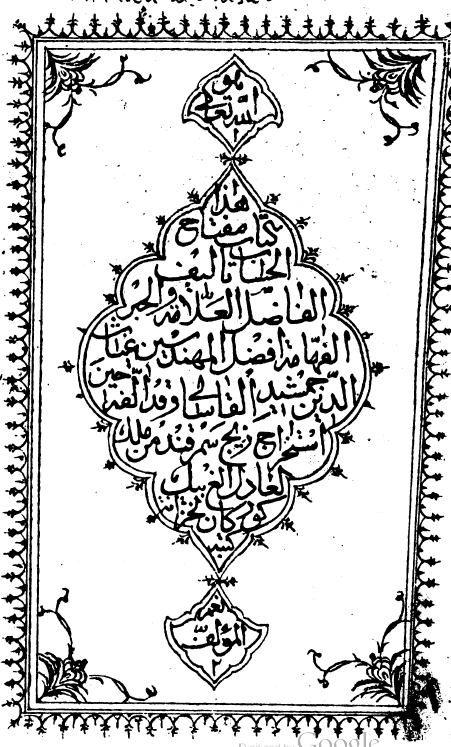 هو
الله تعالى
١
هذا
كتاب مفتاح
الحساب تاليف
الفاضل العلامه والحبر
الفهامة افضل المهندسين غياث
الدين جمشيد القاساني وقد الفه حين
استخراج زيج سمرقند من ملك
لعادل الغبيك
كوركان
نعم
المؤلف
٢
Digitized by Google